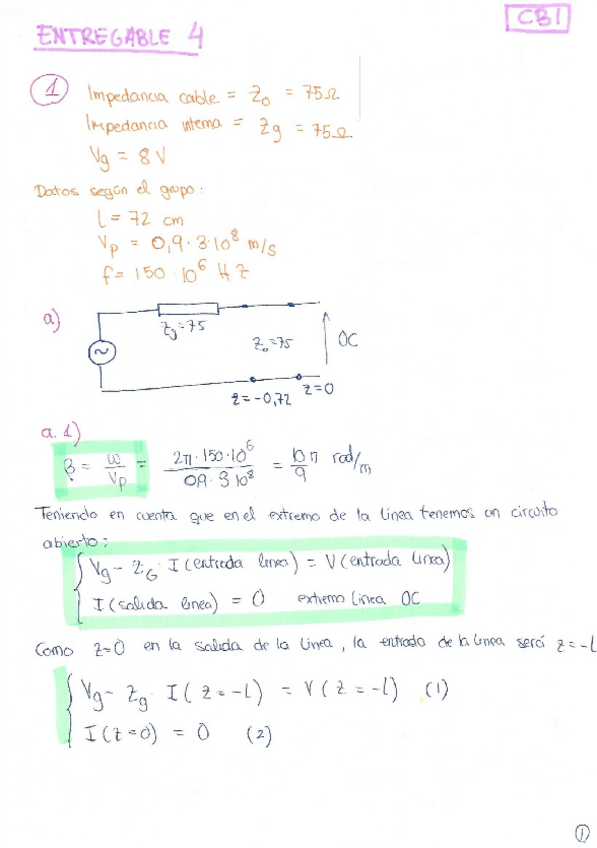 ENTREGABLE 4
CB1
1 Impedancia cable = Z₀ = 75Ω
Impedancia interna = Zg = 75Ω
Vg = 8 V
Datos según el grupo:
l = 72 cm
Vp = 0,9·3·10⁸ m/s
f = 150·10⁶ HZ
a)
Zg=75
Z₀=75
OC
z=-0,72
z=0
a.1)
β = ω/Vp = 2π·150·10⁶ / 0,9·3·10⁸ = 10π/9 rad/m
Teniendo en cuenta que en el extremo de la línea tenemos un circuito
abierto:
Vg - ZG · I(entrada linea) = V(entrada linea)
I(salida linea) = 0 extremo linea OC
Como z=0 en la salida de la linea, la entrada de la linea será z=-l
Vg - Zg · I(z=-l) = V(z=-l) (1)
I(z=0) = 0 (2)
1